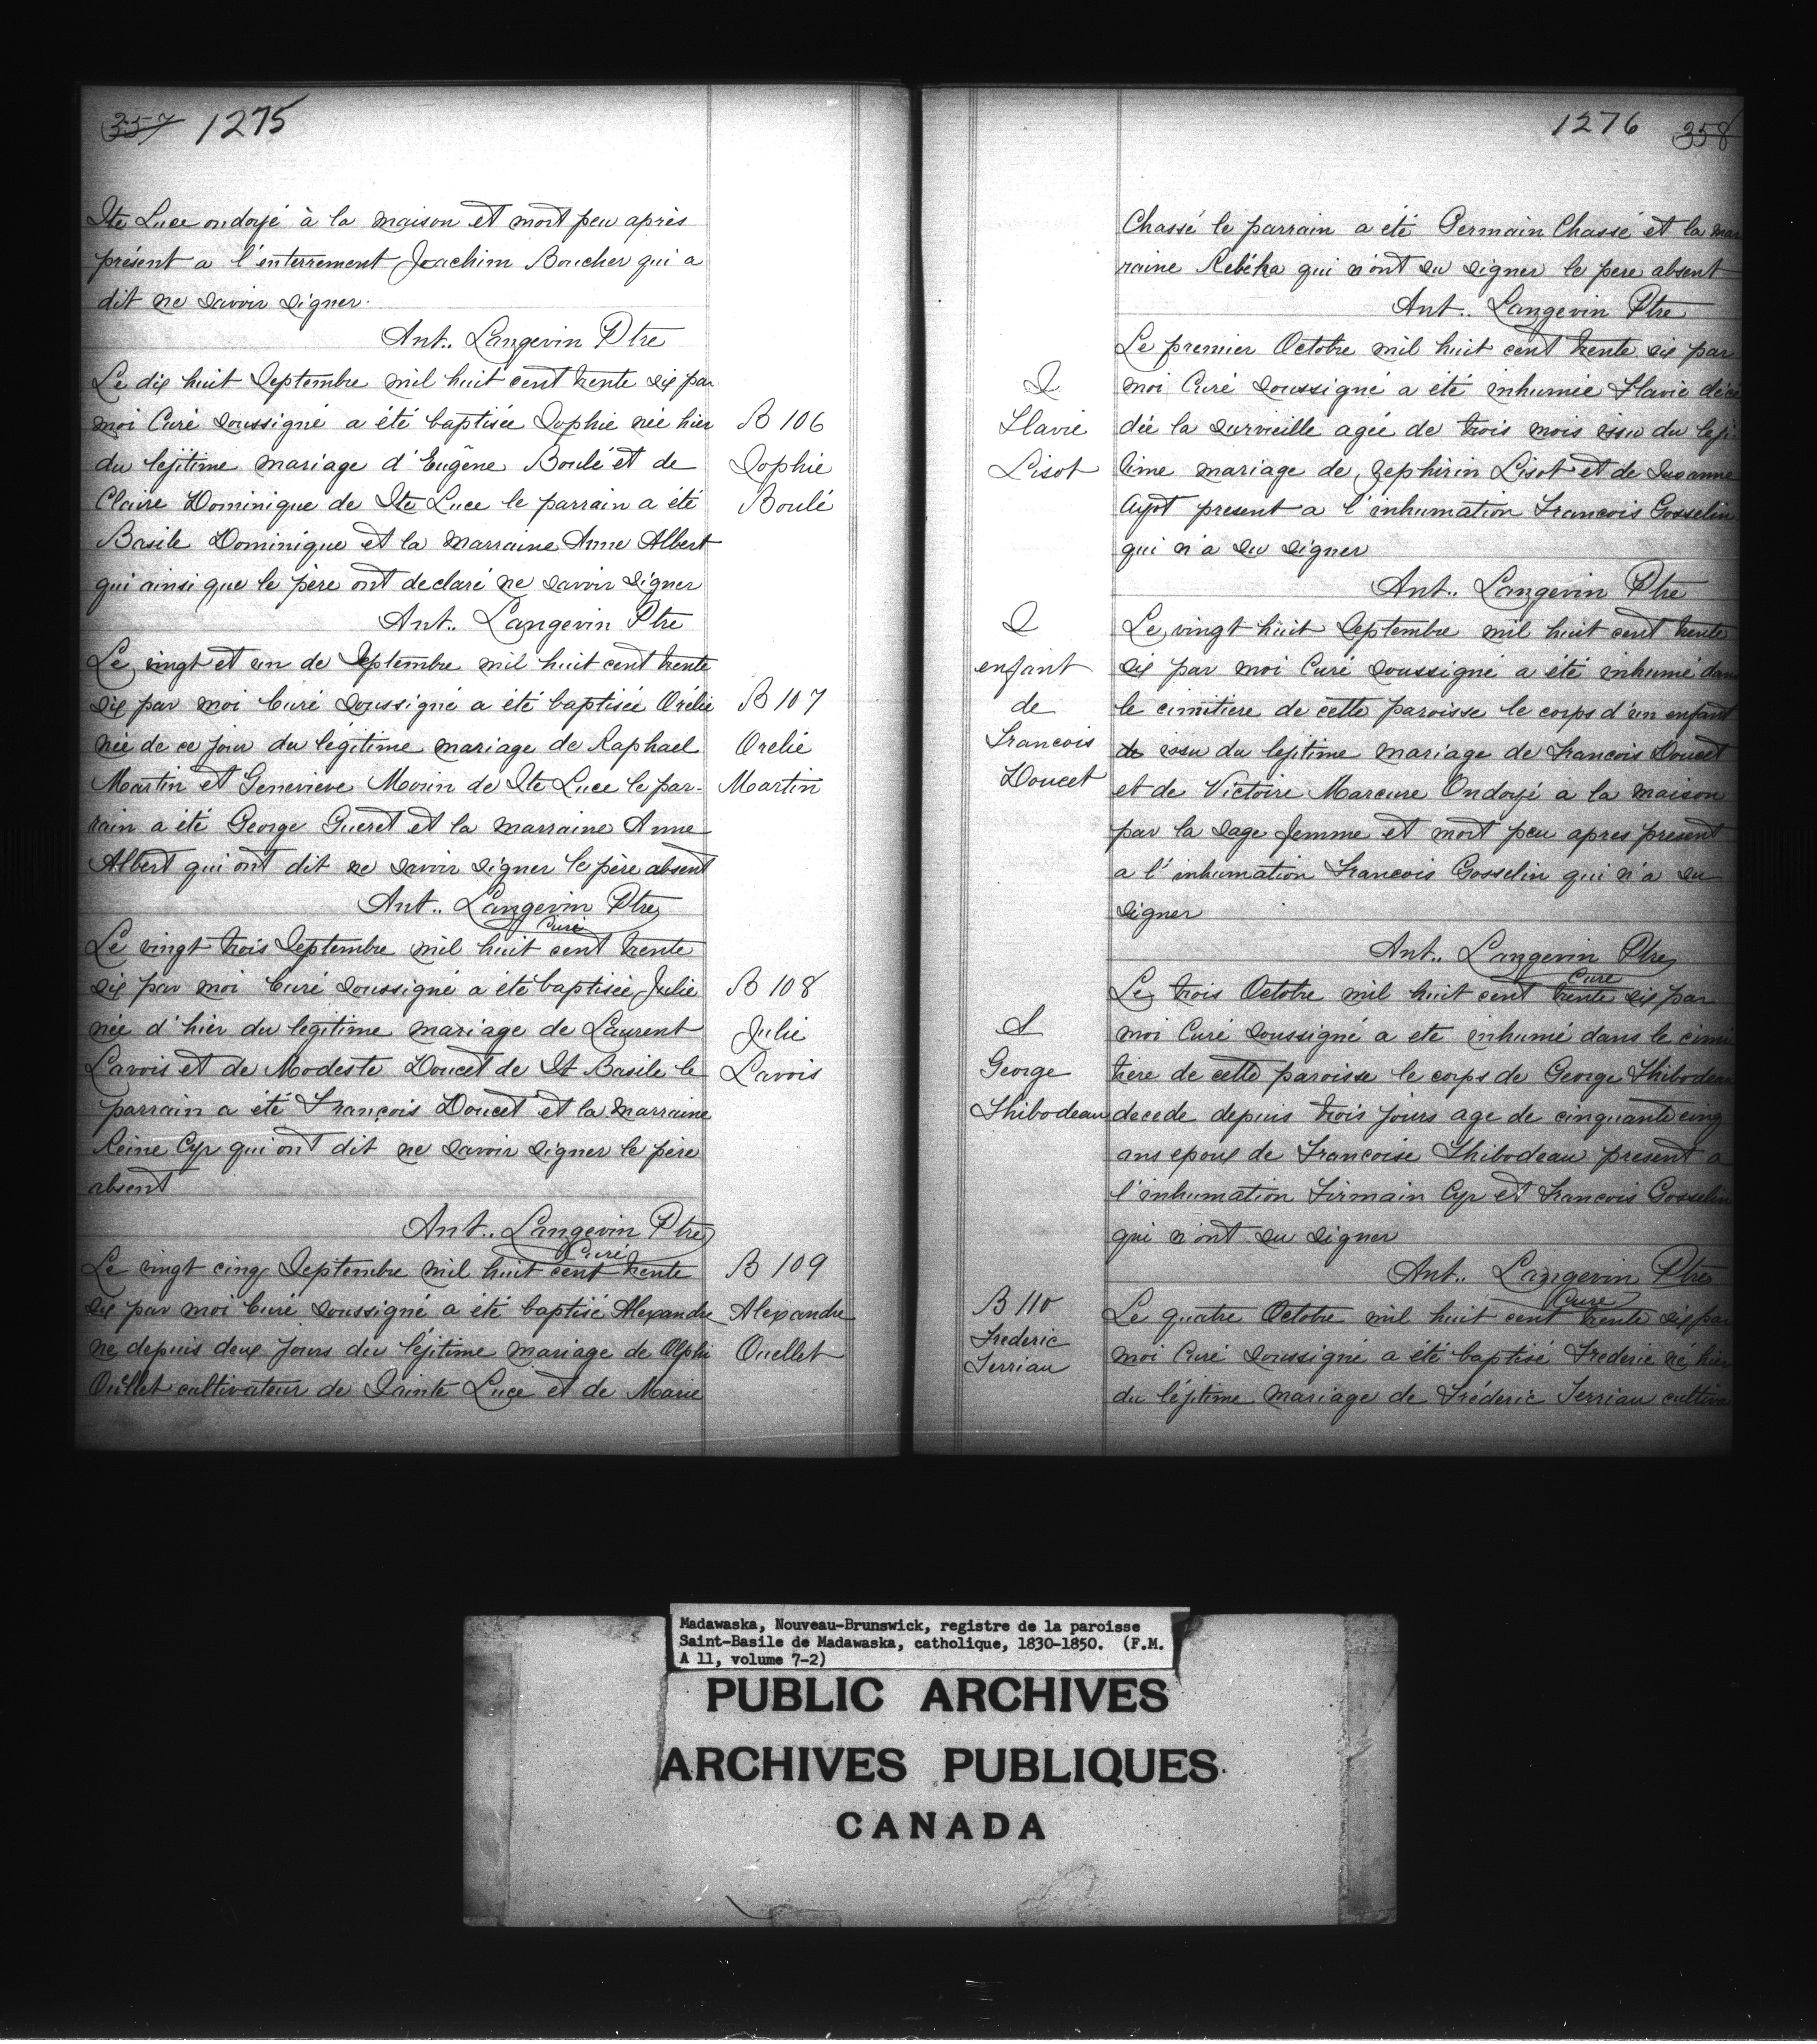 357 1275
Ste Luce ondoyé à la maison et mort peu après
présent a l'enterrement Joachim Boucher qui a
dit ne savoir signer.
Ant.. Langevin Ptre
Le dix huit Septembre mil huit cent trente six par
moi Curé soussigné a été baptisée Sophie née hier
du lejitime mariage d'Eugêne Boulé et de
Claire Dominique de Ste Luce le parrain a été
Basile Dominique et la marraine Anne Albert
qui ainsi que le père ont declaré ne savoir signer
Ant.. Langevin Ptre
B 106
Sophie
Boulé
Le vingt et un de Septembre mil huit cent trente
six par moi Curé soussigné a été baptisée Orélie
née de ce jour du legitime mariage de Raphael
Martin et Genevieve Morin de Ste Luce le par-
rain a été George Gueret et la marraine Anne
Albert qui ont dit ne savoir signer le père absent
Ant.. Langevin Ptre
Curé
B 107
Orelie
Martin
Le vingt trois Septembre mil huit cent trente
six par moi Curé soussigné a été baptisée Julie
née d'hier du legitime mariage de Laurent
Lavois et de Modeste Doucet de St Basile le
parrain a été François Doucet et la marraine
Reine Cyr qui ont dit ne savoir signer le père
absent
Ant.. Langevin Ptre
Curé
B 108
Julie
Lavois
Le vingt cinq Septembre mil huit cent trente
six par moi Curé soussigné a été baptisé Alexandre
ne depuis deux jours du léjitime mariage de Olphi
Oullet cultivateur de Sainte Luce et de Marie
B 109
Alexandre
Ouellet
1276 358
Chassé le parrain a été Germain Chassé et la mar
raine Rebéka qui n'ont su signer le pere absent
Ant.. Langevin Ptre
Le premier Octobre mil huit cent trente six par
moi Curé soussigné a été inhumée Flavie décé
dée la surveille agée de trois mois issu du leji
time mariage de Zephirin Lisot et de Susanne
Ayot present a l'inhumation Francois Gosselin
qui n'a su signer
Ant.. Langevin Ptre
S
Flavie
Lisot
Le vingt huit Septembre mil huit cent trente
six par moi Curé soussigné a été inhumé dans
le cimitiere de cette paroisse le corps d'un enfant
de issu du lejitime mariage de Francois Doucet
et de Victoire Marcure Ondoyé a la maison
par la sage femme et mort peu apres present
a l'inhumation Francois Gosselin qui n'a su
signer
Ant.. Langevin Ptre
Cure
S
enfant
de
Francois
Doucet
Le trois Octobre mil huit cent trente six par
moi Curé soussigné a ete inhumé dans le cimi
tiere de cette paroisse le corps de George Thibodeau
decede depuis trois jours age de cinquante cinq
ans epoux de Francoise Thibodeau present a
l'inhumation Firmain Cyr et Francois Gosselin
qui n'ont su signer
Ant.. Langevin Ptre
Cure
S
George
Thibodeau
Le quatre Octobre mil huit cent trente six par
moi Curé soussigné a été baptisé Frederic né hier
du léjitime mariage de Fréderic Terriau cultiva
B 110
Frederic
Terriau
Madawaska, Nouveau-Brunswick, registre de la paroisse
Saint-Basile de Madawaska, catholique, 1830-1850. (F.M.
A 11, volume 7-2)
PUBLIC ARCHIVES
ARCHIVES PUBLIQUES
CANADA